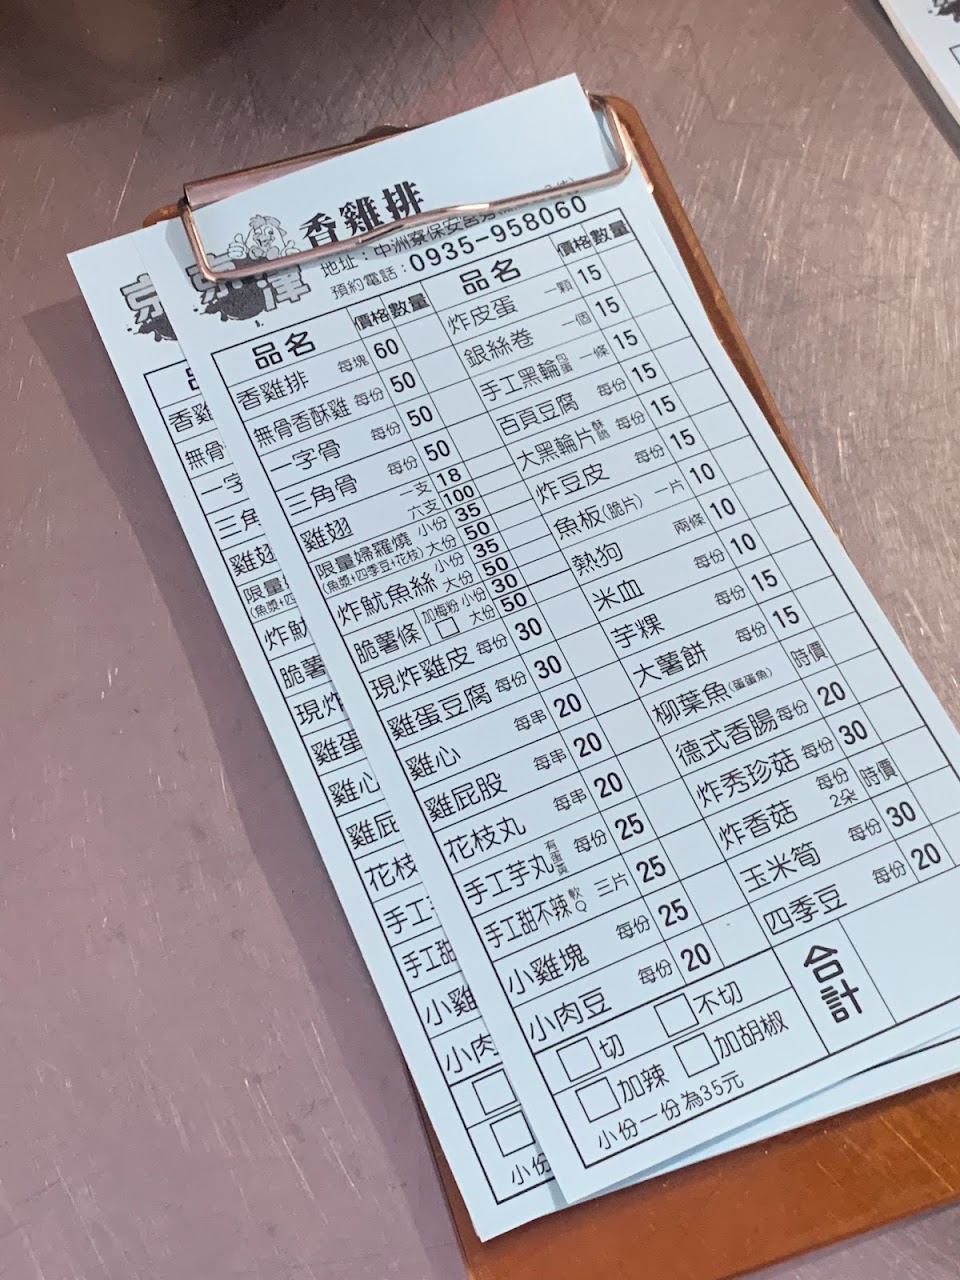 香雞排
地址：中洲寮保安宮旁
預約電話：0935-958060
品名 價格 數量
香雞排 每塊 60
無骨香酥雞 每份 50
一字骨 每份 50
三角骨 每份 50
雞翅 一支 18
六支 100
限量婦羅燒 小份 35
(魚漿+四季豆+花枝) 大份 50
炸魷魚絲 小份 35
大份 50
脆薯條 加梅粉 小份 30
大份 50
現炸雞皮 每份 30
雞蛋豆腐 每份 30
雞心 每串 20
雞屁股 每串 20
花枝丸 每串 20
手工芋丸 有蛋黃 每份 25
手工甜不辣 軟Q 三片 25
小雞塊 每份 25
小肉豆 每份 20
品名 價格 數量
炸皮蛋 一顆 15
銀絲卷 一個 15
手工黑輪 包蛋 一條 15
百頁豆腐 每份 15
大黑輪片 酥脆 每份 15
炸豆皮 每份 15
魚板(脆片) 一片 10
熱狗 兩條 10
米血 每份 10
芋粿 每份 15
大薯餅 每份 15
柳葉魚(蛋蛋魚) 時價
德式香腸 每份 20
炸秀珍菇 每份 30
炸香菇 每份 2朵 時價
玉米筍 每份 30
四季豆 每份 20
切 不切
加辣 加胡椒
合計
小份一份為35元
京
香雞
無骨
一字
三角
雞翅
限量
(魚漿+四
炸魷
脆薯
現炸
雞蛋
雞心
雞屁
花枝
手工
手工甜
小雞
小肉
小份